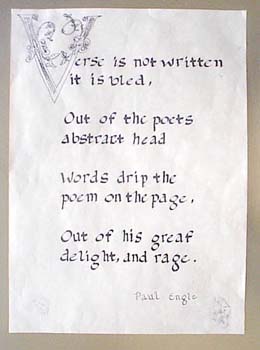 Verse is not written
it is bled,
Out of the poets
abstract head
Words drip the
poem on the page,
Out of his great
delight, and rage.
Paul Engle